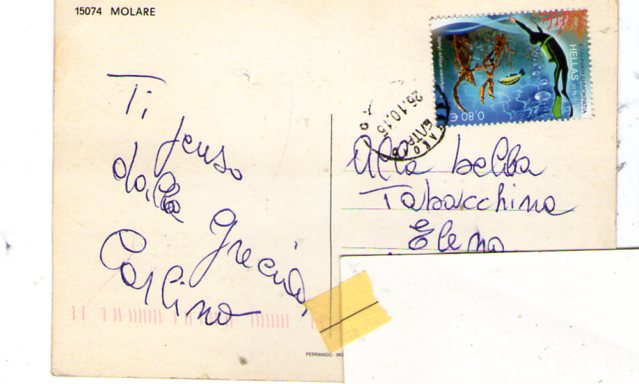 15074 MOLARE
HELLAS
0,80 €
26.10.15
Ti penso
dalla
Grecia,
Carlino
Alla bella
Tabacchina
Elena